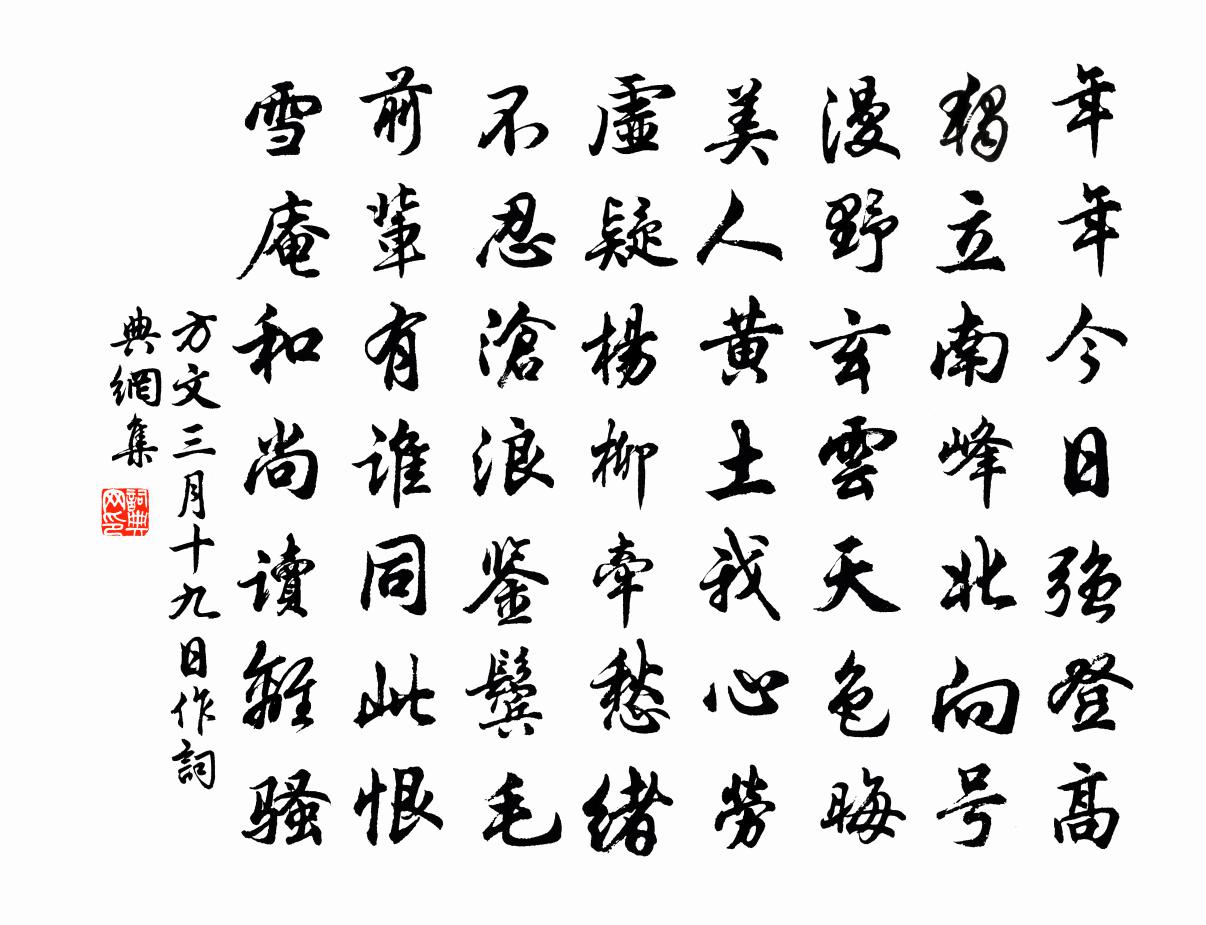 年年今日強登高
獨立南峰北向号
漫野玄雲天色晦
美人黄土我心勞
虛疑楊柳牽愁緒
不忍滄浪鑒鬢毛
前輩有誰同此恨
雪庵和尚讀離騷
方文三月十九日作詞
典網集
詞典
网印